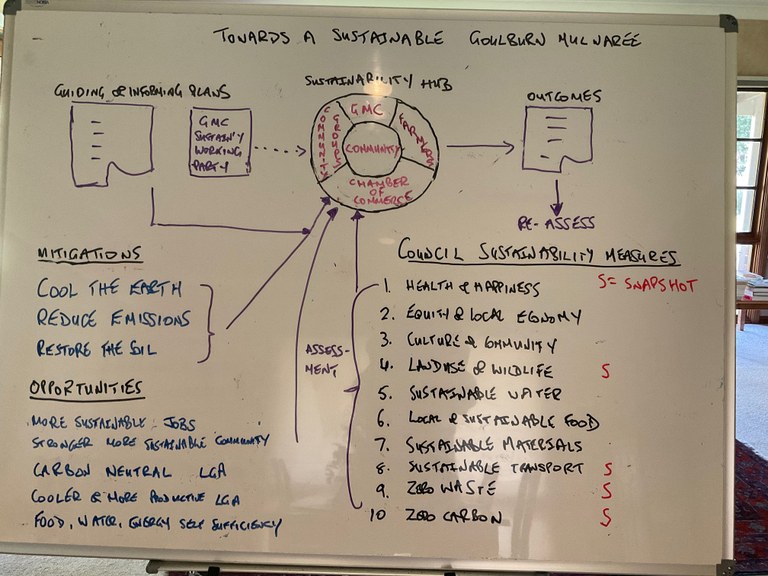 TOWARDS A SUSTAINABLE GOULBURN MULWAREE
SUSTAINABILITY HUB
GUIDING & INFORMING PLANS
OUTCOMES
GMC
SUSTAIN'Y
WORKING
PARTY
COMMUNITY
GROUPS
GMC
FARMERS
COMMUNITY
CHAMBER
OF
COMMERCE
RE-ASSESS
MITIGATIONS
COOL THE EARTH
REDUCE EMISSIONS
RESTORE THE SOIL
OPPORTUNITIES
MORE SUSTAINABLE JOBS
STRONGER MORE SUSTAINABLE COMMUNITY
CARBON NEUTRAL LGA
COOLER & MORE PRODUCTIVE LGA
FOOD, WATER, ENERGY SELF SUFFICIENCY
ASSESS-
MENT
COUNCIL SUSTAINABILITY MEASURES
S= SNAPSHOT
1. HEALTH & HAPPINESS
2. EQUITY & LOCAL ECONOMY
3. CULTURE & COMMUNITY
4. LANDUSE & WILDLIFE S
5. SUSTAINABLE WATER
6. LOCAL & SUSTAINABLE FOOD
7. SUSTAINABLE MATERIALS
8. SUSTAINABLE TRANSPORT S
9. ZERO WASTE S
10 ZERO CARBON S